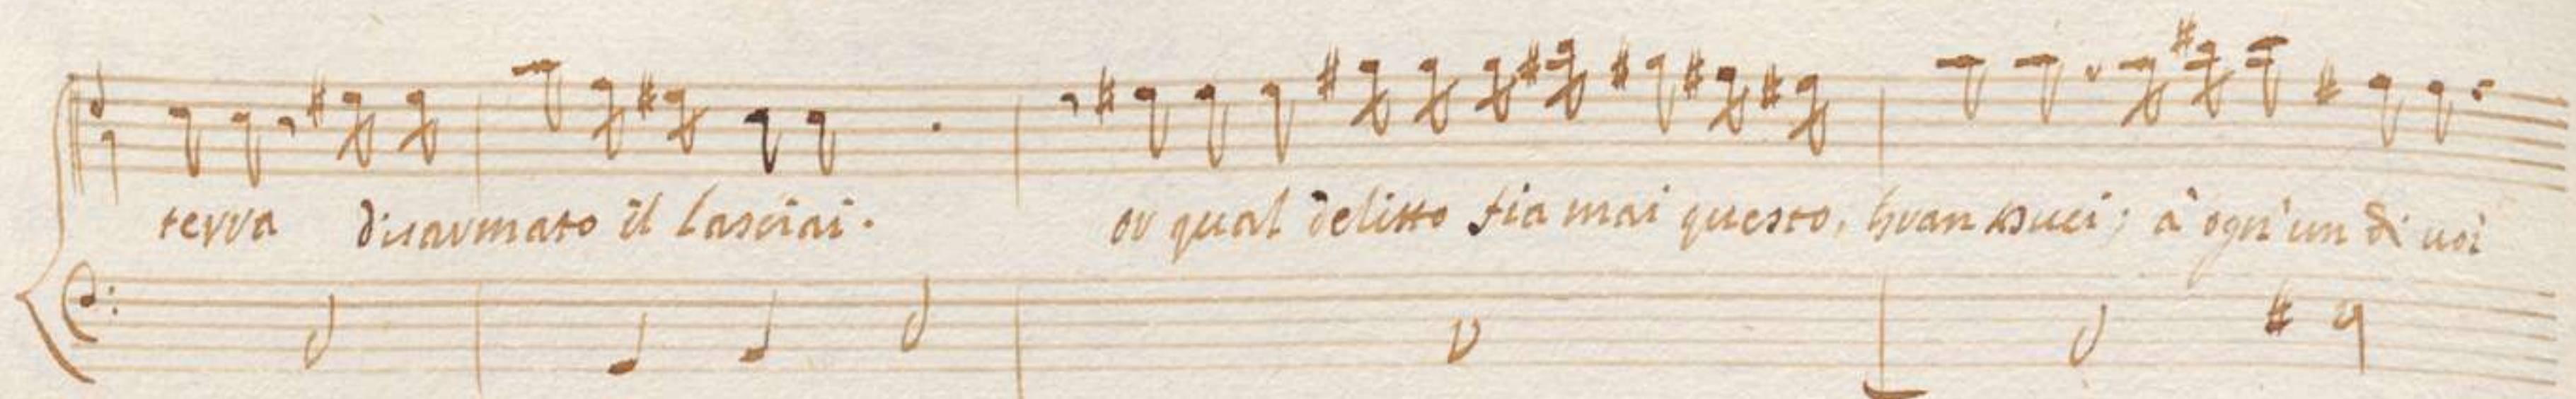 terra disarmato il lasciai. or qual delitto fia mai questo, gran Duci; à ogn'un di uoi